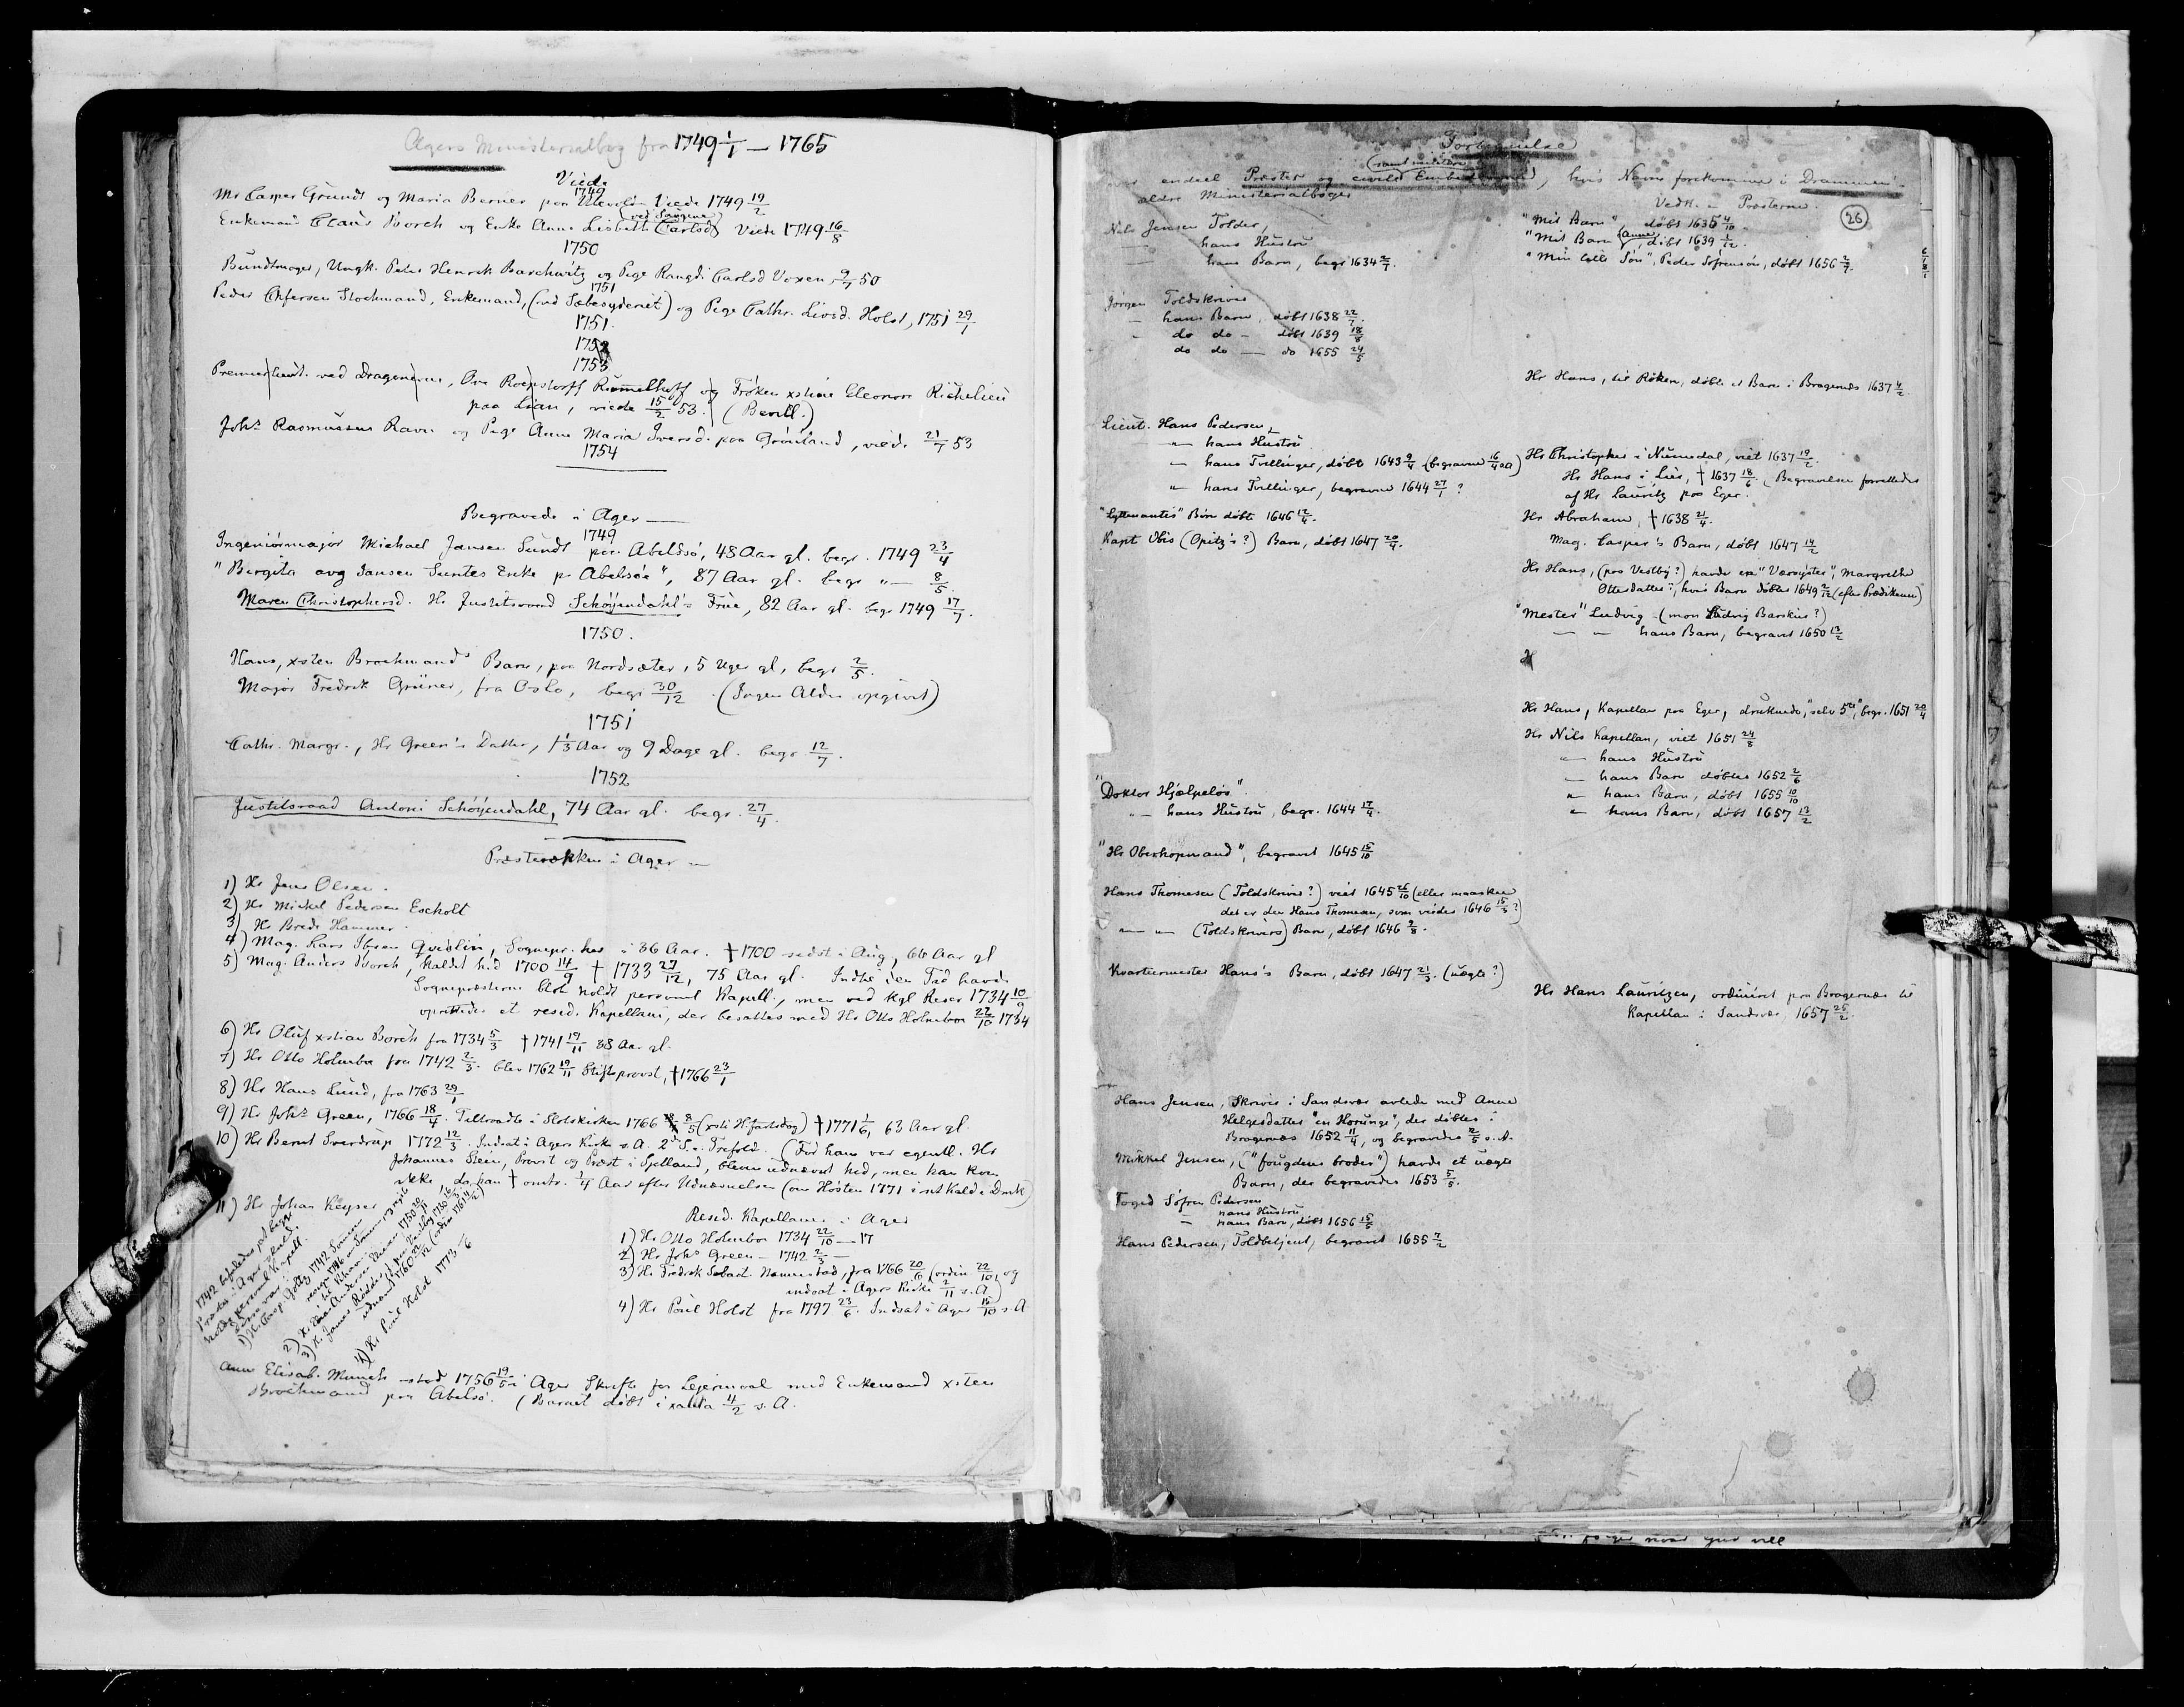 Agers Ministerialbog fra 1749 1/1 — 1765
Viede
1749
Mr Casper Grundt og Maria Berner paa Ulevolen Viede 1749 19/2
(ved Saugene)
Enkemand Claus Borch og Enke Anne Lisbeth Carlsd Viede 1749 16/8
1750
Bundtmager, Ungk. Peter Henrik Barchwitz og Pige Rangdi Carlsd Voxen, 9/7 50
1751
Peder Chfersen Stockmand, Enkemand, (ved Sæbesyderiet) og Pige Cathr. Livsd. Holst, 1751 29/1
1751.
1752
1753
Premierlieut. ved Dragonerne, Ove Roepstorff Rømmelhoff og Frøken xstine Eleonore Richelieu
paa Lian, viede 15/2 53. (Bevill.)
Johs Rasmussen Ravn og Pige Anne Maria Iversd. paa Grønland, viede 21/7 53
1754
Begravede i Ager —
1749
Ingeniørmajor Michael Jansen Sundt paa Abelsø, 48 Aar gl. begr. 1749 23/4
"Birgita avg Jansen Suntes Enke p Abelsøe", 87 Aar gl. begr "— 8/5.
Maren Christophersd. Hr Justitsraad Schøyendahl's Frue, 82 Aar gl. begr 1749 17/7.
1750.
Hans, xsten Brochmands Barn, paa Nordsæter, 5 Uger gl, begr 2/5.
Major Fredrik Grüner, fra Oslo, begr 30/12. (Ingen Alder opgivet)
1751
Cathr. Margr., Hr Green's Datter, 1 1/3 Aar og 9 Dage gl. begr 12/7.
1752
Justitsraad Antoni Schøyendahl, 74 Aar gl. begr. 27/4.
Præsterækken i Ager —
1) Hr Jens Olsen.
2) Hr Mickel Pedersen Escholt
3) Hr Brede Hammer.
4) Mag. Lars Ibsen Qvislin, Sognepr. her i 36 Aar. † 1700 sidst i Aug, 66 Aar gl
5) Mag. Anders Borch, kaldet hid 1700 14/9 † 1733 27/12, 75 Aar gl. Indtil den Tid havde
Sognepræsterne blot holdt personel Kapell., men ved kgl Reser 1734 10/9
oprettedes et resid. Kapellani, der besattes med Hr Otto Holmboe 22/10 1734
6) Hr Oluf xstian Borch fra 1734 5/3 † 1741 19/11 38 Aar gl.
7) Hr Otto Holmboe fra 1742 2/3. blev 1762 19/11 Stiftsprovst, † 1766 23/1
8) Hr Hans Lund, fra 1763 29/1
9) Hr Johs Green, 1766 18/4. Tiltraadte i Slotskirken 1766 8/5 (xsti Hfartsdag) † 1771 1/6, 63 Aar gl
10) Hr Bernt Sverdrup 1772 12/3. Indsat i Agers Kirke s. A. 2d S. e. Trefold. (Før ham var egentl. Hr
Johannes Steen, Provst og Præst i Sjelland, bleven udnævnt hid, men han kom
ikke, da han † omtr. 1/4 Aar efter Udnævnelsen (om Høsten 1771 i sit Kald i Dmk)
11) Hr Johan Keyser
1742 befaledes
Præster i Ager skulde
holde personel Kapell.
1)
2)
3)
4) Hr Poul Holst 1773
Resid. Kapellaner i Ager
1) Hr Otto Holmboe 1734 22/10 — 17
2) Hr Johs Green — 1742 2/3 —
3) Hr Fredrik Sebast. Nannestad, fra 1766 20/6 (ordin 22/10, og
indsat i Agers Kirke 2/11 s. A)
4) Hr Poul Holst fra 1797 23/6. Indsat i Ager 15/10 s. A
Ann Elisab. Munch stod 1756 19/5 i Ager Skrifte for Lejermaal med Enkemand xsten
Brochmand paa Abelsø. (Barnet døbt i xania 4/2 s. A.
Fortegnelse
(samt militære)
endeel Præster og civile Embedsmænd, hvis Navne forekomme i Drammens
ældre Ministerialbøger
26
Nils Jensen Tolder,
— hans Hustru
— hans Barn, begr 1634 2/7.
Jørgen Toldskriver
— hans Barn, døbt 1638 22/7.
" do do — døbt 1639 18/8
do do — do 1655 24/5
Lieut. Hans Pedersen,
—"— hans Hustru
" hans Tvillinger, døbt 1643 9/4 (begravne 16/4 aa)
" hans Tvillinger, begravne 1644 27/1?
"Lyttenantes" Børn døbt 1646 12/4.
Kapt Obis (Opitz's?) Barn, døbt 1647 20/4.
"Doktor Hjælpeløs".
"— hans Hustru, begr. 1644 17/4.
"Hr Oberhopmand", begravet 1645 15/10
Hans Thomesen (Toldskriver?) viet 1645 26/10 (eller maaskee
det er den Hans Thomesen, som viedes 1646 15/3?)
"— "— (Toldskrivers) Barn, døbt 1646 9/8.
Kvarteermester Hans's Barn, døbt 1647 21/3. (uægte?)
Hans Jensen, Skriver i Sandsvær avlede med Anne
Helgesdatter "en Horunge", der døbtes i
Bragernæs 1652 11/4, og begravedes 2/5 s. A.
Mikkel Jensen, ("fougdens broder") havde et uægte
Barn, der begravedes 1653 5/5.
Foged Søfren Pedersen
hans Hustru
— hans Barn, døbt 1656 15/5
Hans Pedersen, Toldbetjent, begravet 1655 7/2
Vedk. Præsterne.
"Mit Barn" døbt 1635 4/10.
"Mit Barn (Anne), døbt 1639 1/12.
"Min lille Søn", Peder Søfrensøn, døbt 1656 2/7.
Hr Hans, til Røken, døbte et Barn i Bragernæs 1637 4/2.
Hr Christopher i Numedal, viet 1637 19/2.
Hr Hans i Lier, † 1637 18/6. Begravelsen forrettedes
af Hr Lauritz paa Eger.
Hr Abraham, † 1638 21/4.
Mag. Casper's Barn, døbt 1647 14/2
Hr Hans, (paa Vestby?) havde en "Værsyster", Margrethe
Ottesdatter, hvis Barn døbtes 1649 2/12 (efter Prædikenen)
"Mester" Ludvig — (mon Ludvig Barskius?)
— " — hans Barn, begravet 1650 13/2
H
Hr Hans, Kapellan paa Eger, druknede, "selv 5te", begr. 1651 20/4
Hr Nils Kapellan, viet 1651 24/8
"— hans Hustru
— hans Barn døbtes 1652 2/6
"— hans Barn, døbt 1655 10/10
"— hans Barn, døbt 1657 13/2
Hr Hans Lauritzen, ordineret paa Bragernæs til
Kapellan i Sandsvær, 1657 25/2.